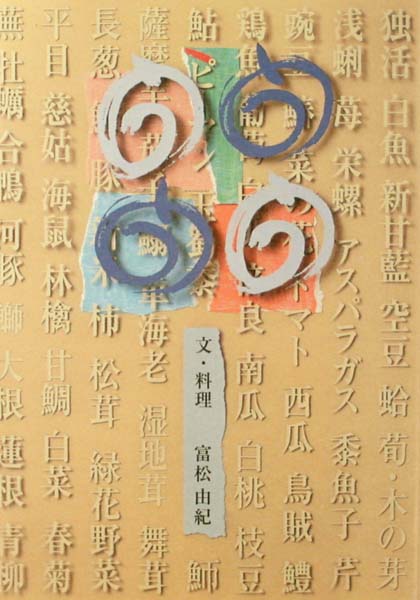 独活 白魚 新甘藍 空豆 蛤 筍・木の芽
浅蜊 苺 栄螺 アスパラガス 黍魚子 芹
豌豆 菜の花 トマト 西瓜 烏賊 鱧
鶏魚 葡萄 南瓜 白桃 枝豆
鮎 ピーマン 玉蜀黍
薩摩芋 車海老 湿地茸 舞茸
長葱 柿 松茸 緑花野菜
平目 慈姑 海鼠 林檎 甘鯛 白菜 春菊
蕪 牡蠣 合鴨 河豚 鰤 大根 蓮根 青柳
文・料理 富松由紀